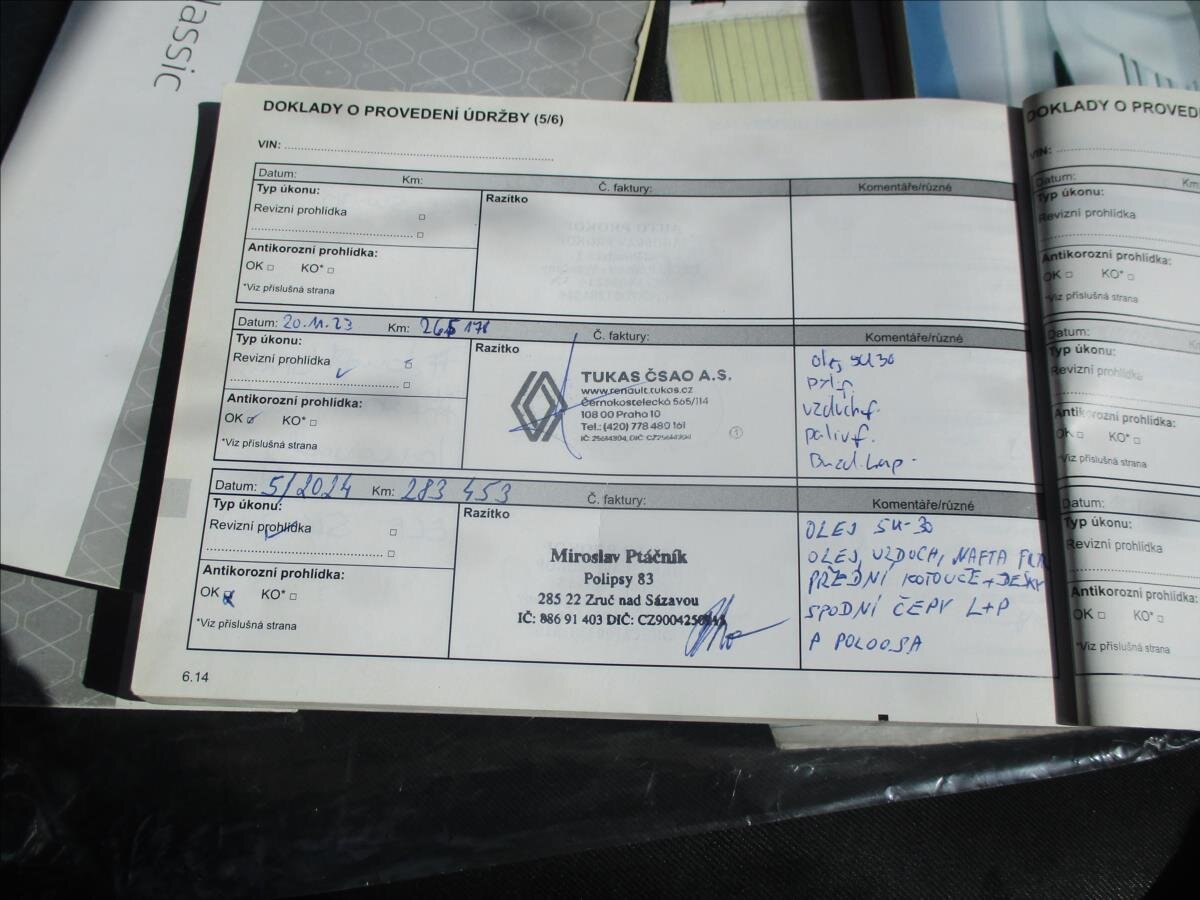 lassic
DOKLADY O PROVEDENÍ ÚDRŽBY (5/6)
VIN:
Datum: Km: Č. faktury: Komentáře/různé
Typ úkonu:
Razítko
Revizní prohlídka
Antikorozní prohlídka:
OK KO*
*Viz příslušná strana
Datum: 20.11.23 Km: 265 178 Č. faktury: Komentáře/různé
Typ úkonu:
Razítko
Revizní prohlídka
Antikorozní prohlídka:
OK KO*
*Viz příslušná strana
TUKAS ČSAO A.S.
www.renault.tukas.cz
Černokostelecká 565/114
108 00 Praho 10
Tel.: (420) 778 480 161
olej 5W30
pyl f.
vzduch f.
paliv f.
Datum: 5/2024 Km: 283 453 Č. faktury: Komentáře/různé
Typ úkonu:
Razítko
Revizní prohlídka
Antikorozní prohlídka:
OK KO*
*Viz příslušná strana
Miroslav Ptáčník
Polipsy 83
285 22 Zruč nad Sázavou
IČ: 886 91 403 DIČ:
OLEJ 5W-30
OLEJ, VZDUCH, NAFTA FILTR
PŘEDNÍ KOTOUČE + DESKY
SPODNÍ ČEPY L+P
P POLOOSA
6.14
DOKLADY O PROVED
VIN:
Datum: Km
Typ úkonu:
Revizní prohlídka
Antikorozní prohlídka:
OK KO*
*Viz příslušná strana
Datum:
Typ úkonu:
Revizní prohlídka
Antikorozní prohlídka:
OK KO*
*Viz příslušná strana
Datum:
Typ úkonu:
Revizní prohlídka
Antikorozní prohlídka:
OK KO*
*Viz příslušná strana